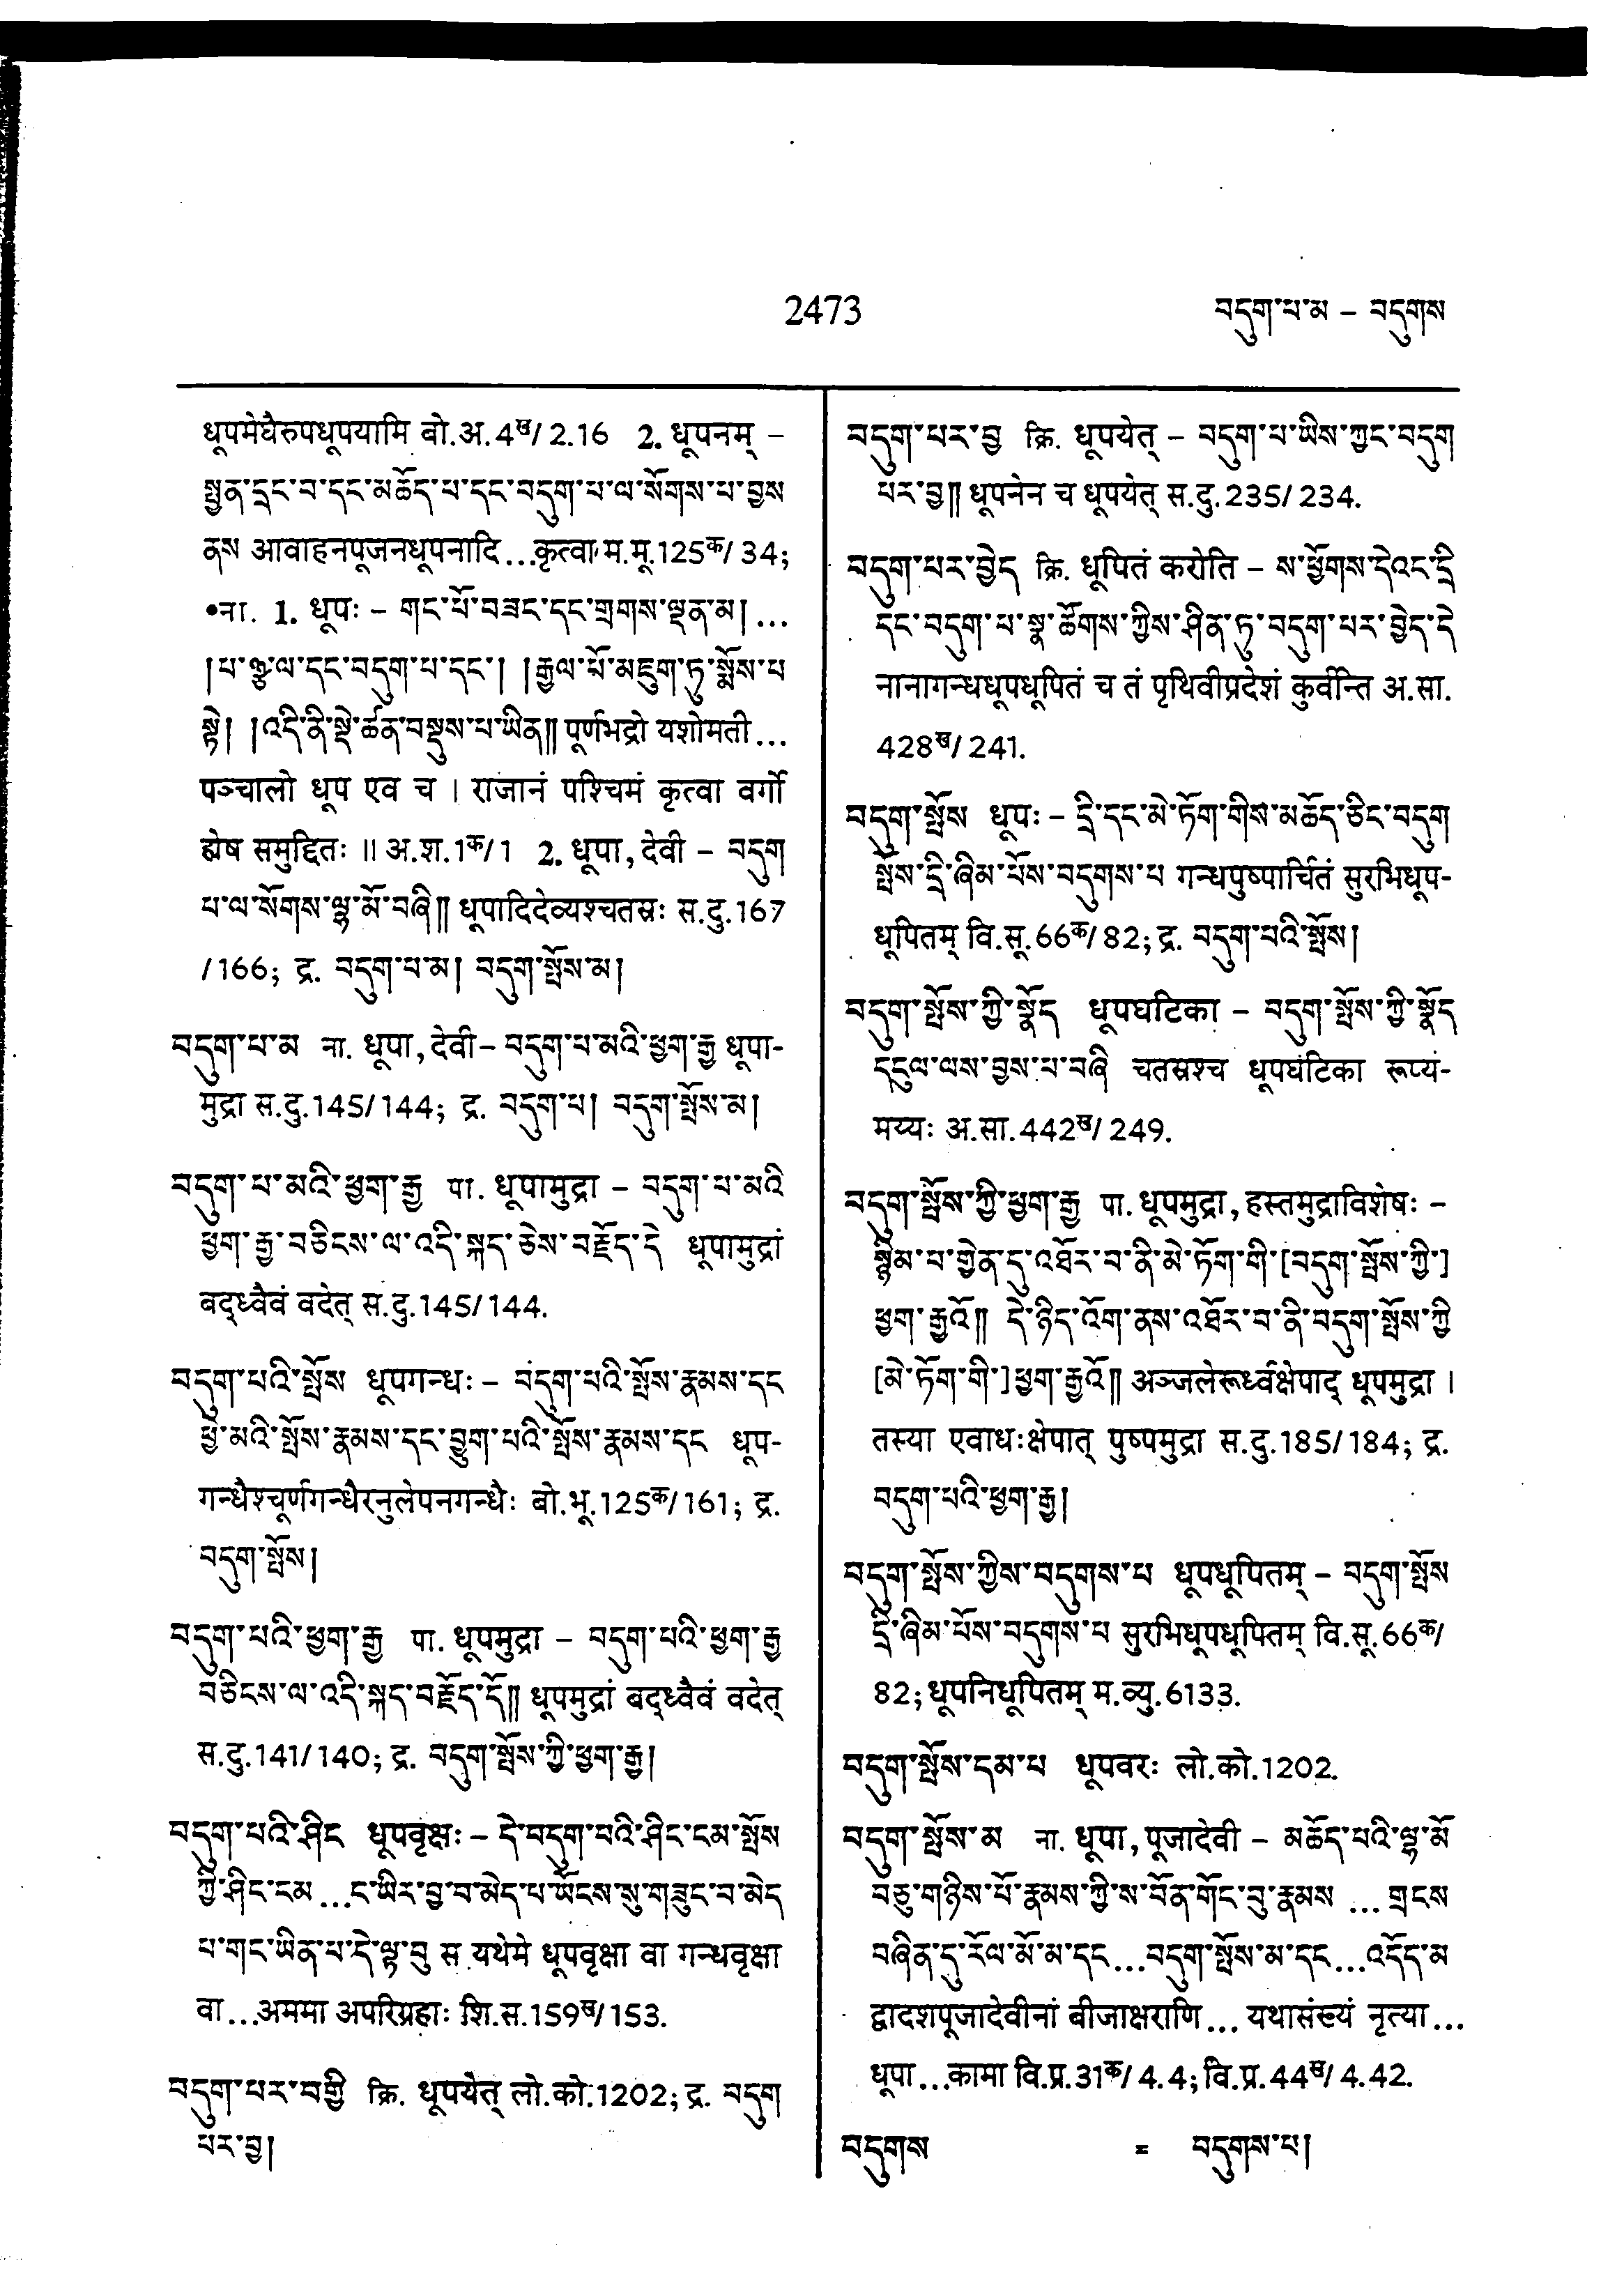 2473
བདུག་པ་མ – བདུགས
धूपमेघैरुपधूपयामि बो.अ.4ख/2.16 2. धूपनम् –
སྤྱན་དྲང་བ་དང་མཆོད་པ་དང་བདུག་པ་ལ་སོགས་པ་བྱས
ནས आवाहनपूजनधूपनादि...कृत्वा म.मू.125क/34;
•ना. 1. धूपः – གང་པོ་བཟང་དང་གྲགས་ལྡན་མ། ...
།པ་ཉྩ་ལ་དང་བདུག་པ་དང་། །རྒྱལ་པོ་མཇུག་ཏུ་སྨོས་པ
སྟེ། །འདི་ནི་སྡེ་ཚན་བསྡུས་པ་ཡིན༎ पूर्णभद्रो यशोमती...
पञ्चालो धूप एव च । राजानं पश्चिमं कृत्वा वर्गो
ह्येष समुद्दितः ॥ अ.श.1क/1 2. धूपा, देवी – བདུག
པ་ལ་སོགས་ལྷ་མོ་བཞི༎ धूपादिदेव्यश्चतस्रः स.दु.167
/166; द्र. བདུག་པ་མ། བདུག་སྤོས་མ།
བདུག་པ་མ ना. धूपा, देवी– བདུག་པ་མའི་ཕྱག་རྒྱ धूपा-
मुद्रा स.दु.145/144; द्र. བདུག་པ། བདུག་སྤོས་མ།
བདུག་པ་མའི་ཕྱག་རྒྱ पा. धूपामुद्रा – བདུག་པ་མའི
ཕྱག་རྒྱ་བཅིངས་ལ་འདི་སྐད་ཅེས་བརྗོད་དེ धूपामुद्रां
बद्ध्वैवं वदेत् स.दु.145/144.
བདུག་པའི་སྤོས धूपगन्धः – བདུག་པའི་སྤོས་རྣམས་དང
ཕྱེ་མའི་སྤོས་རྣམས་དང་བྱུག་པའི་སྤོས་རྣམས་དང धूप-
गन्धैश्चूर्णगन्धैरनुलेपनगन्धैः बो.भू.125क/161; द्र.
བདུག་སྤོས།
བདུག་པའི་ཕྱག་རྒྱ पा. धूपमुद्रा – བདུག་པའི་ཕྱག་རྒྱ
བཅིངས་ལ་འདི་སྐད་བརྗོད་དོ༎ धूपमुद्रां बद्ध्वैवं वदेत्
स.दु.141/140; द्र. བདུག་སྤོས་ཀྱི་ཕྱག་རྒྱ།
བདུག་པའི་ཤིང धूपवृक्षः – དེ་བདུག་པའི་ཤིང་ངམ་སྤོས
ཀྱི་ཤིང་ངམ ...ང་ཡིར་བྱ་བ་མེད་པ་ཡོངས་སུ་གཟུང་བ་མེད
པ་གང་ཡིན་པ་དེ་ལྟ་བུ स यथेमे धूपवृक्षा वा गन्धवृक्षा
वा...अममा अपरिग्रहाः शि.स.159ख/153.
བདུག་པར་བགྱི क्रि. धूपयेत् लो.को.1202; द्र. བདུག
པར་བྱ།
བདུག་པར་བྱ क्रि. धूपयेत् – བདུག་པ་ཡིས་ཀྱང་བདུག
པར་བྱ༎ धूपनेन च धूपयेत् स.दु.235/234.
བདུག་པར་བྱེད क्रि. धूपितं करोति – ས་ཕྱོགས་དེའང་དྲི
དང་བདུག་པ་སྣ་ཚོགས་ཀྱིས་ཤིན་ཏུ་བདུག་པར་བྱེད་དེ
नानागन्धधूपधूपितं च तं पृथिवीप्रदेशं कुर्वन्ति अ.सा.
428ख/241.
བདུག་སྤོས धूपः – དྲི་དང་མེ་ཏོག་གིས་མཆོད་ཅིང་བདུག
སྤོས་དྲི་ཞིམ་པོས་བདུགས་པ गन्धपुष्पार्चितं सुरभिधूप-
धूपितम् वि.सू.66क/82; द्र. བདུག་པའི་སྤོས།
བདུག་སྤོས་ཀྱི་སྣོད धूपघटिका – བདུག་སྤོས་ཀྱི་སྣོད
དངུལ་ལས་བྱས་པ་བཞི चतस्रश्च धूपघटिका रूप्य-
मय्यः अ.सा.442ख/249.
བདུག་སྤོས་ཀྱི་ཕྱག་རྒྱ पा. धूपमुद्रा, हस्तमुद्राविशेषः –
སྙིམ་པ་གྱེན་དུ་འཐོར་བ་ནི་མེ་ཏོག་གི་[བདུག་སྤོས་ཀྱི་]
ཕྱག་རྒྱའོ༎ དེ་ཉིད་འོག་ནས་འཐོར་བ་ནི་བདུག་སྤོས་ཀྱི
[མེ་ཏོག་གི་]ཕྱག་རྒྱའོ༎ अञ्जलेरूर्ध्वक्षेपाद् धूपमुद्रा ।
तस्या एवाधःक्षेपात् पुष्पमुद्रा स.दु.185/184; द्र.
བདུག་པའི་ཕྱག་རྒྱ།
བདུག་སྤོས་ཀྱིས་བདུགས་པ धूपधूपितम् – བདུག་སྤོས
དྲི་ཞིམ་པོས་བདུགས་པ सुरभिधूपधूपितम् वि.सू.66क/
82; धूपनिधूपितम् म.व्यु.6133.
བདུག་སྤོས་དམ་པ धूपवरः लो.को.1202.
བདུག་སྤོས་མ ना. धूपा, पूजादेवी – མཆོད་པའི་ལྷ་མོ
བཅུ་གཉིས་པོ་རྣམས་ཀྱི་ས་བོན་གོང་བུ་རྣམས ... གྲངས
བཞིན་དུ་རོལ་མོ་མ་དང...བདུག་སྤོས་མ་དང...འདོད་མ
द्वादशपूजादेवीनां बीजाक्षराणि... यथासंख्यं नृत्या...
धूपा...कामा वि.प्र.31क/4.4; वि.प्र.44ख/4.42.
བདུགས = བདུགས་པ།